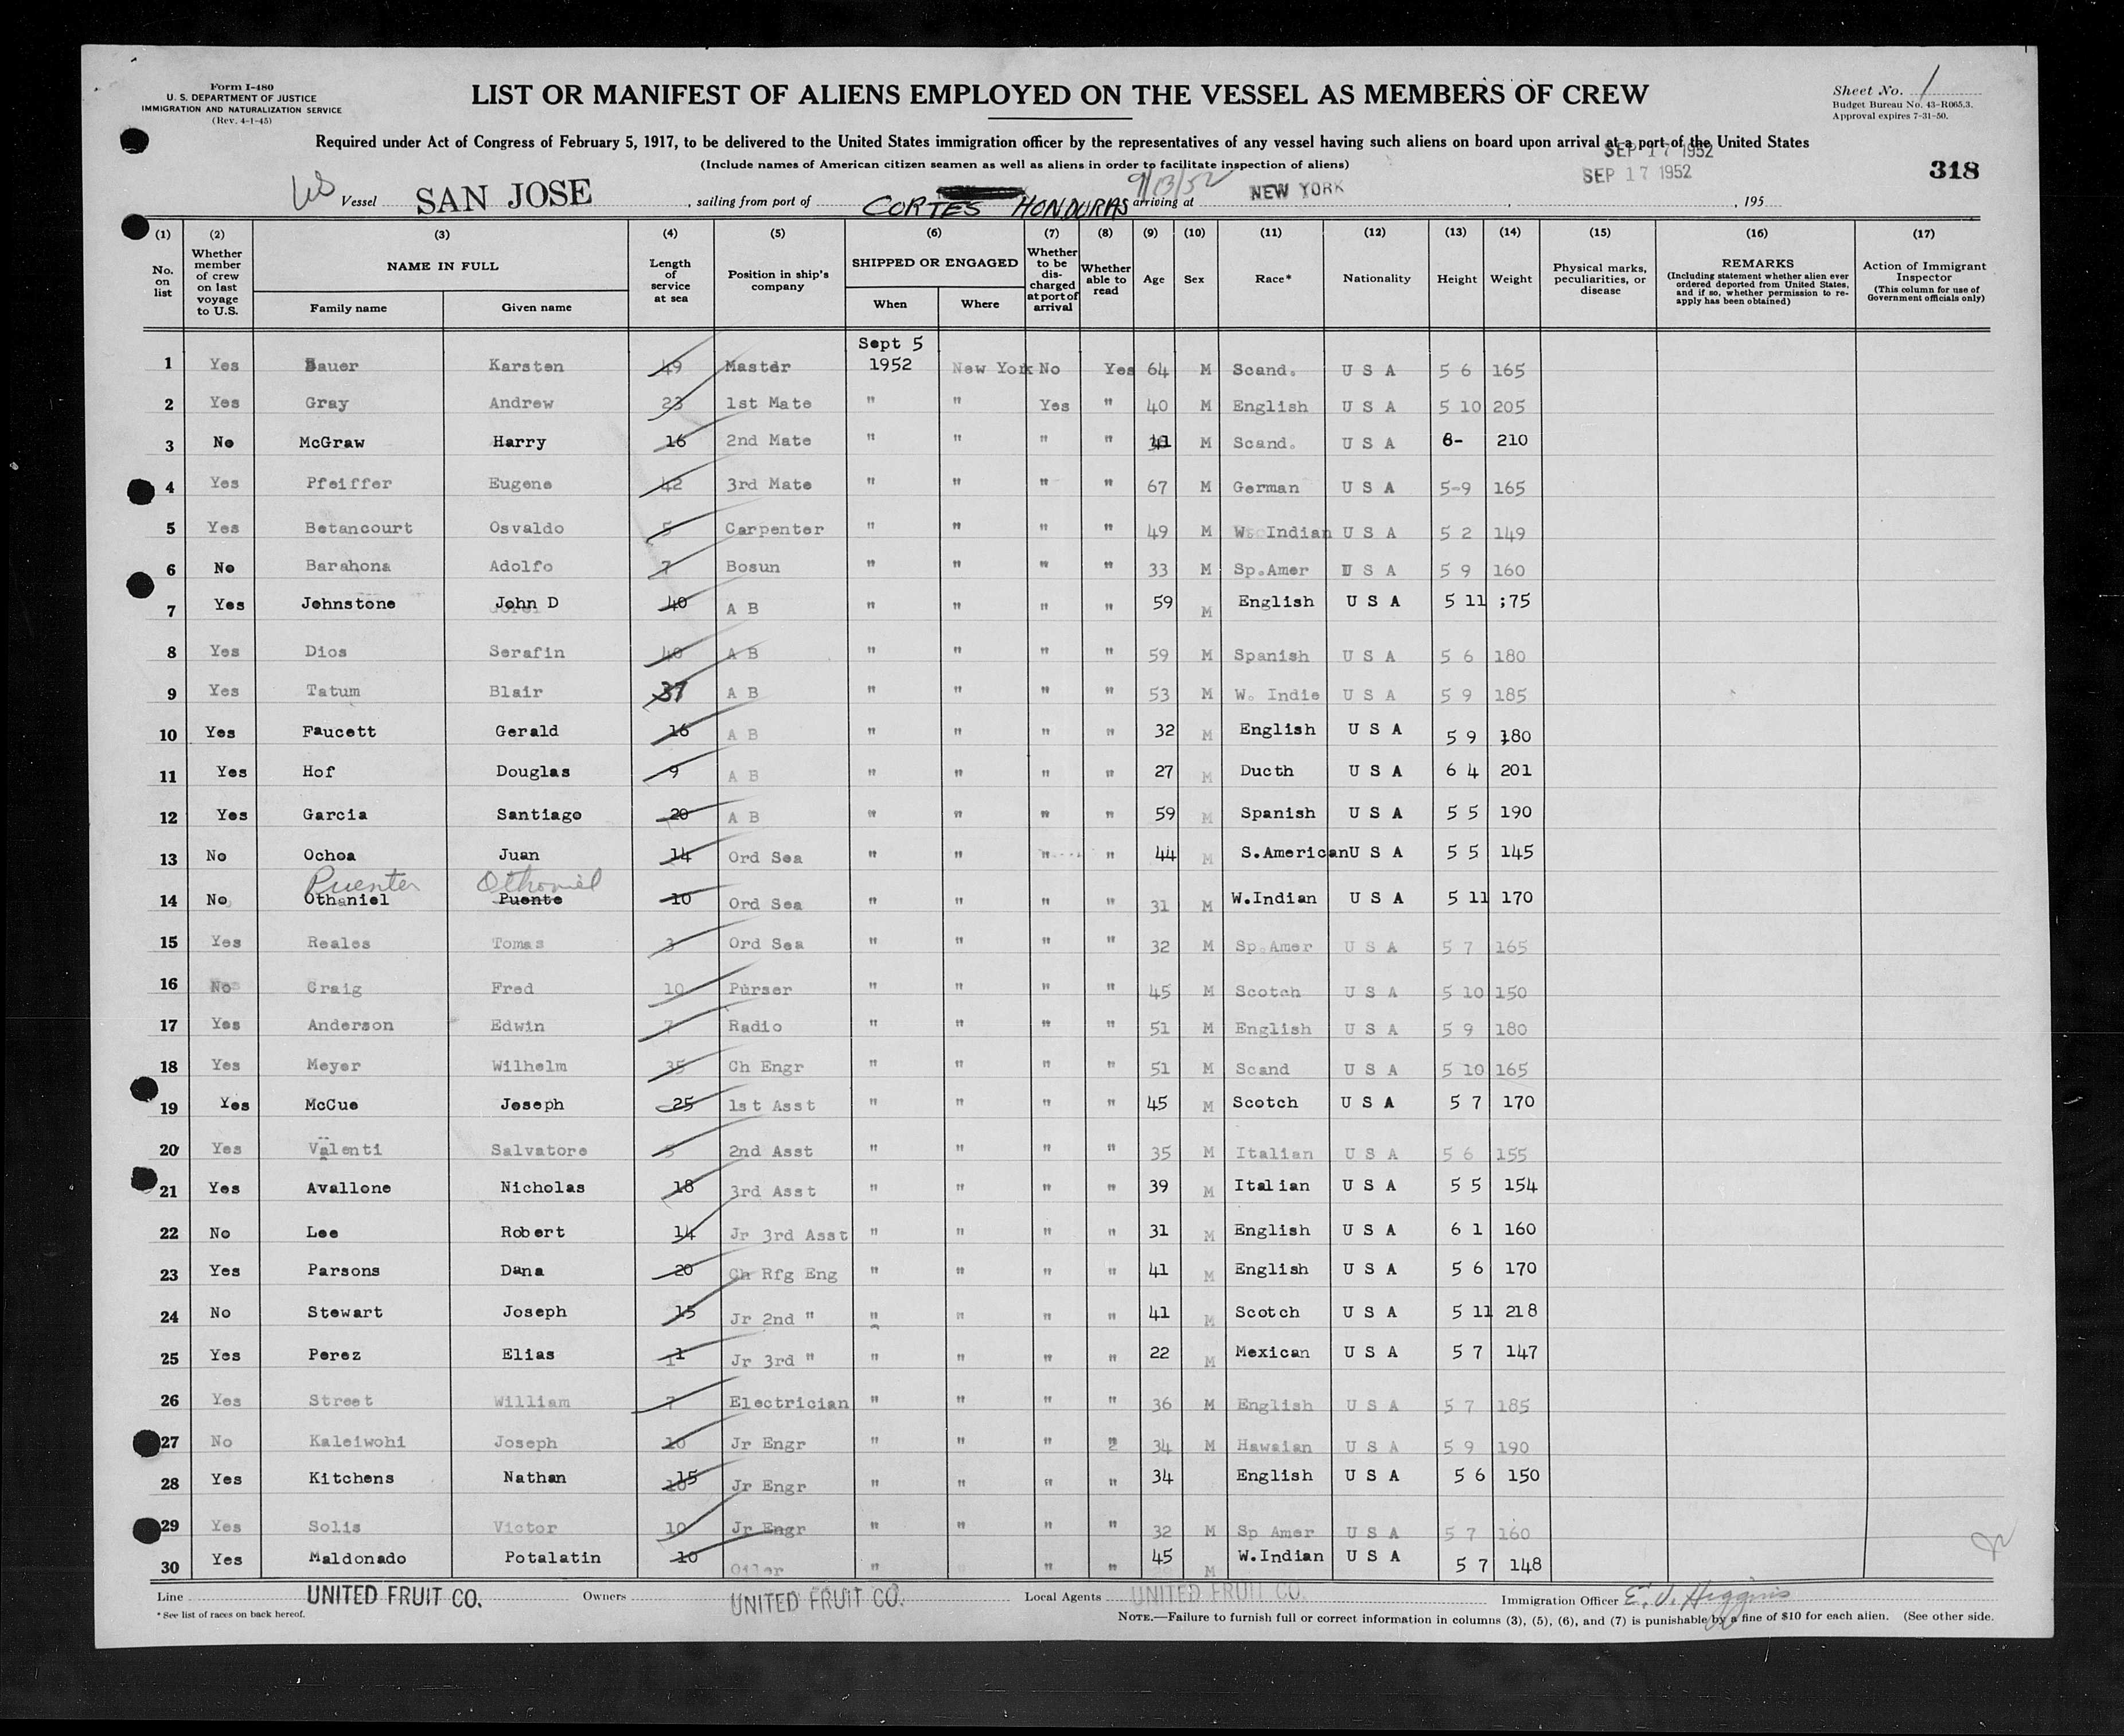 Form I-480
U. S. DEPARTMENT OF JUSTICE
IMMIGRATION AND NATURALIZATION SERVICE
(Rev. 4-1-45)
LIST OR MANIFEST OF ALIENS EMPLOYED ON THE VESSEL AS MEMBERS OF CREW
Sheet No. 1
Budget Bureau No. 43-R065.3.
Approval expires 7-31-50.
Required under Act of Congress of February 5, 1917, to be delivered to the United States immigration officer by the representatives of any vessel having such aliens on board upon arrival at a port of the United States
(Include names of American citizen seamen as well as aliens in order to facilitate inspection of aliens)
SEP 17 1952
SEP 17 1952
318
US Vessel SAN JOSE, sailing from port of CORTES HONDURAS 9/13/52 arriving at NEW YORK, , 195
(1) (2) (3) (4) (5) (6) (7) (8) (9) (10) (11) (12) (13) (14) (15) (16) (17)
No. on list
Whether member of crew on last voyage to U.S.
NAME IN FULL
Family name Given name
Length of service at sea
Position in ship's company
SHIPPED OR ENGAGED
When Where
Whether to be discharged at port of arrival
Whether able to read
Age
Sex
Race*
Nationality
Height
Weight
Physical marks, peculiarities, or disease
REMARKS
(Including statement whether alien ever ordered deported from United States, and if so, whether permission to reapply has been obtained)
Action of Immigrant Inspector
(This column for use of Government officials only)
Sept 5
1 Yes Bauer Karsten 49 Master 1952 New York No Yes 64 M Scand. U S A 5 6 165
2 Yes Gray Andrew 23 1st Mate " " Yes " 40 M English U S A 5 10 205
3 No McGraw Harry 16 2nd Mate " " " " 41 M Scand. U S A 6- 210
4 Yes Pfeiffer Eugene 42 3rd Mate " " " " 67 M German U S A 5-9 165
5 Yes Betancourt Osvaldo 5 Carpenter " " " " 49 M W. Indian U S A 5 2 149
6 No Barahona Adolfo 7 Bosun " " " " 33 M Sp.Amer U S A 5 9 160
7 Yes Johnstone John D 40 A B " " " " 59 M English U S A 5 11 ;75
8 Yes Dios Serafin 40 A B " " " " 59 M Spanish U S A 5 6 180
9 Yes Tatum Blair 37 A B " " " " 53 M W. Indie U S A 5 9 185
10 Yes Faucett Gerald 16 A B " " " " 32 M English U S A 5 9 180
11 Yes Hof Douglas 9 A B " " " " 27 M Ducth U S A 6 4 201
12 Yes Garcia Santiago 20 A B " " " " 59 M Spanish U S A 5 5 190
13 No Ochoa Juan 14 Ord Sea " " " " 44 M S.American U S A 5 5 145
Puenter Othoniel
14 No Othaniel Puente 10 Ord Sea " " " " 31 M W.Indian U S A 5 11 170
15 Yes Reales Tomas 3 Ord Sea " " " " 32 M Sp.Amer U S A 5 7 165
16 No Craig Fred 10 Purser " " " " 45 M Scotch U S A 5 10 150
17 Yes Anderson Edwin 7 Radio " " " " 51 M English U S A 5 9 180
18 Yes Meyer Wilhelm 35 Ch Engr " " " " 51 M Scand U S A 5 10 165
19 Yes McCue Joseph 25 1st Asst " " " " 45 M Scotch U S A 5 7 170
20 Yes Valenti Salvatore 5 2nd Asst " " " " 35 M Italian U S A 5 6 155
21 Yes Avallone Nicholas 18 3rd Asst " " " " 39 M Italian U S A 5 5 154
22 No Lee Robert 14 Jr 3rd Asst " " " " 31 M English U S A 6 1 160
23 Yes Parsons Dana 20 Ch Rfg Eng " " " " 41 M English U S A 5 6 170
24 No Stewart Joseph 15 Jr 2nd " " " " " 41 M Scotch U S A 5 11 218
25 Yes Perez Elias 1 Jr 3rd " " " " " 22 M Mexican U S A 5 7 147
26 Yes Street William 7 Electrician " " " " 36 M English U S A 5 7 185
27 No Kaleiwohi Joseph 10 Jr Engr " " " " 34 M Hawaian U S A 5 9 190
28 Yes Kitchens Nathan 15 Jr Engr " " " " 34 English U S A 5 6 150
29 Yes Solis Victor 10 Jr Engr " " " " 32 M Sp Amer U S A 5 7 160
30 Yes Maldonado Potalatin 10 Oiler " " " 45 M W.Indian U S A 5 7 148
Line UNITED FRUIT CO. Owners UNITED FRUIT CO. Local Agents UNITED FRUIT CO. Immigration Officer E. J. Higgins
* See list of races on back hereof.
NOTE.—Failure to furnish full or correct information in columns (3), (5), (6), and (7) is punishable by a fine of $10 for each alien. (See other side.